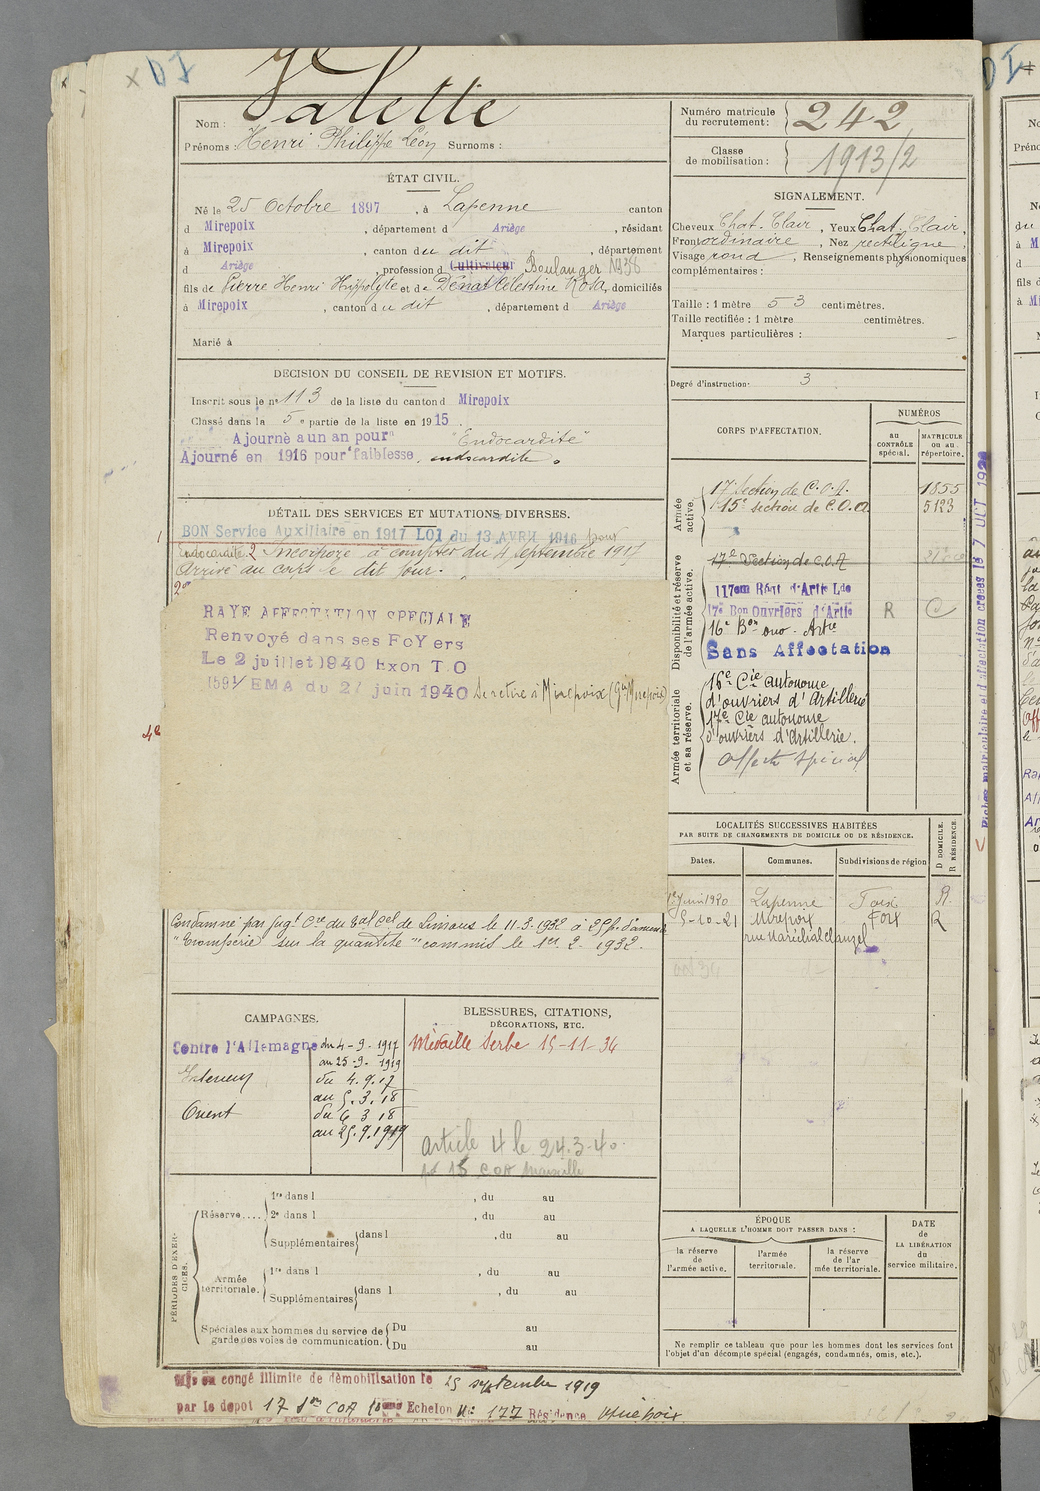 DI
Valette
Nom :
Prénoms : Henri Philippe Léon Surnoms :
Numéro matricule du recrutement : 242
Classe de mobilisation : 1913/2
ÉTAT CIVIL.
Né le 25 Octobre 1897, à Lapenne canton
d Mirepoix, département d Ariège, résidant
à Mirepoix, canton du dit, département
d Ariège, profession d Cultivateur Boulanger
fils de Pierre Henri Hyppolyte et de Dénat Célestine Rosa, domiciliés
à Mirepoix, canton du dit, département d Ariège
Marié à
SIGNALEMENT.
Cheveux Chat. Clair, Yeux Chat. Clair,
Front ordinaire, Nez rectiligne,
Visage rond, Renseignements physionomiques
complémentaires :
Taille : 1 mètre 53 centimètres.
Taille rectifiée : 1 mètre centimètres.
Marques particulières :
Degré d'instruction : 3
DECISION DU CONSEIL DE REVISION ET MOTIFS.
Inscrit sous le n° 113 de la liste du canton d Mirepoix
Classé dans la 5e partie de la liste en 1915.
Ajourné a un an pour "Endocardite"
Ajourné en 1916 pour faiblesse, endocardite.
CORPS D'AFFECTATION.
NUMÉROS
AU CONTRÔLE spécial.
MATRICULE ou au répertoire.
Armée active.
17e Section de C.O.A. 1855
15e section de C.O.A 5123
Disponibilité et réserve de l'armée active.
17e Section de C.O.A
117em Régt d'Artie Lde
17e Bon Ouvriers d'Artie R C
16e Bon ouv. Artie
Sans Affectation
Armée territoriale et sa réserve.
16e Cie autonome
d'ouvriers d'Artillerie
17e Cie autonome
d'ouvriers d'Artillerie.
Affecté spécial
DÉTAIL DES SERVICES ET MUTATIONS DIVERSES.
BON Service Auxiliaire en 1917 LOI du 13 AVRIL 1916 pour
Endocardite. Incorporé à compter du 4 septembre 1917
Arrivé au corps le dit jour.
RAYE AFFECTATION SPECIALE
Renvoyé dans ses FoYers
Le 2 juillet 1940 Exon T O
1591/EMA du 27 juin 1940 Se retire à Mirepoix (Gde Mirepoix)
4e
Condamné par Jugt Cre du Bal Cel de Limoux le 11-3-1932 à 25f. d'amende
"Tromperie sur la quantité" commis le 1er 2. 1932.
LOCALITÉS SUCCESSIVES HABITÉES
PAR SUITE DE CHANGEMENTS DE DOMICILE OU DE RÉSIDENCE.
Dates. Communes. Subdivisions de région D DOMICILE. R RÉSIDENCE.
1er Juin 1920 Lapenne Foix R.
5-10-21 Mirepoix Foix R
rue Maréchal Clauzel
CAMPAGNES.
Contre l'Allemagne du 4-9-1917
au 25-9-1919
Intérieur du 4.9.17
au 5.3.18
Orient du 6 3 18
au 25.9.1919
BLESSURES, CITATIONS,
DÉCORATIONS, ETC.
Médaille Serbe 15-11-34
Article 4 le 24.3.40.
15 COA Marseille
PÉRIODES D'EXERCICES.
Réserve....
1re dans l , du au
2e dans l , du au
Supplémentaires dans l , du au
Armée territoriale.
1re dans l , du au
Supplémentaires dans l , du au
Spéciales aux hommes du service de
garde des voies de communication.
Du au
Du au
ÉPOQUE
A LAQUELLE L'HOMME DOIT PASSER DANS :
la réserve de l'armée active.
l'armée territoriale.
la réserve de l'armée territoriale.
DATE DE LA LIBÉRATION du service militaire.
Ne remplir ce tableau que pour les hommes dont les services font
l'objet d'un décompte spécial (engagés, condamnés, omis, etc.).
Mis en congé illimité de démobilisation le 25 septembre 1919
par le dépot 17 Son COA Echelon N° 177 Résidence Mirepoix